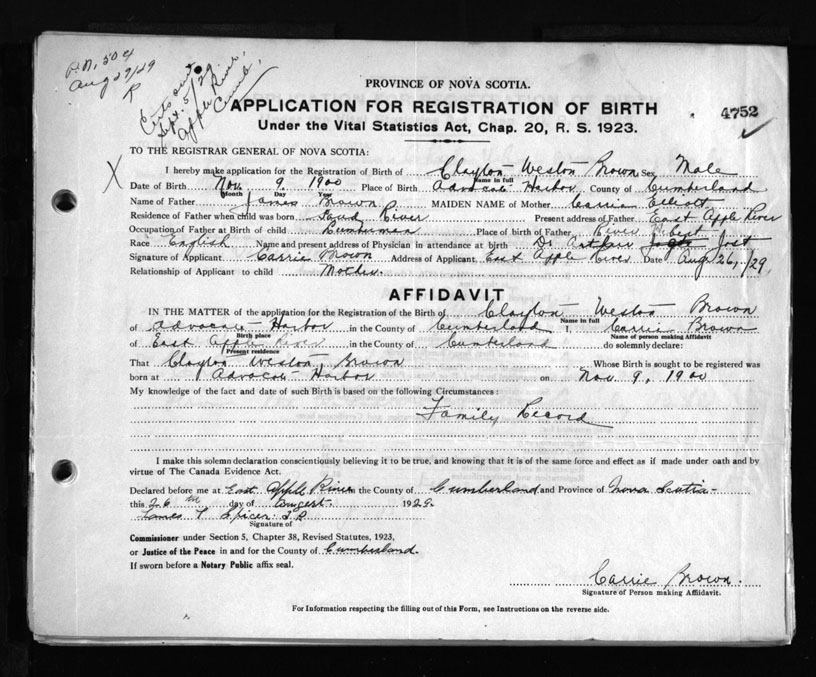 P.N. 504
Aug 29/29
R
Certs out
Sept. 5/29
Apple River,
Cumb.
PROVINCE OF NOVA SCOTIA.
APPLICATION FOR REGISTRATION OF BIRTH
4752
Under the Vital Statistics Act, Chap. 20, R. S. 1923.
TO THE REGISTRAR GENERAL OF NOVA SCOTIA:
X
I hereby make application for the Registration of Birth of Clayton Weston Brown Sex Male
Name in full
Date of Birth Nov. 9, 1900 Place of Birth Advocate Harbor County of Cumberland
Month Day Year
Name of Father James Brown MAIDEN NAME of Mother Carrie Elliott
Residence of Father when child was born Sand River Present address of Father East Apple River
Occupation of Father at Birth of child Lumberman Place of birth of Father River Hebert
Race English Name and present address of Physician in attendance at birth Dr. Arthur Jost
Signature of Applicant Carrie Brown Address of Applicant East Apple River Date Aug 26, /29,
Relationship of Applicant to child Mother.
AFFIDAVIT
IN THE MATTER of the application for the Registration of the Birth of Clayton Weston Brown
Name in full
of Advocate Harbor in the County of Cumberland I, Carrie Brown
Birth place Name of person making Affidavit
of East Apple River in the County of Cumberland do solemnly declare:
Present residence
That Clayton Weston Brown Whose Birth is sought to be registered was
born at Advocate Harbor on Nov 9, 1900
My knowledge of the fact and date of such Birth is based on the following Circumstances:
Family Record
I make this solemn declaration conscientiously believing it to be true, and knowing that it is of the same force and effect as if made under oath and by
virtue of The Canada Evidence Act.
Declared before me at East Apple River in the County of Cumberland and Province of Nova Scotia
this 26th day of Augest 1929.
James T Spicer J P
Signature of
Commissioner under Section 5, Chapter 38, Revised Statutes, 1923,
or Justice of the Peace in and for the County of Cumberland.
If sworn before a Notary Public affix seal.
Carrie Brown.
Signature of Person making Affidavit.
For Information respecting the filling out of this Form, see Instructions on the reverse side.